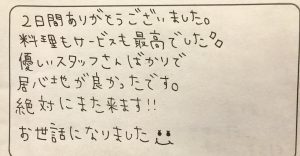 2日間ありがとうございました。
料理もサービスも最高でした
優しいスタッフさんばかりで
居心地が良かったです。
絶対にまた来ます!!
お世話になりました